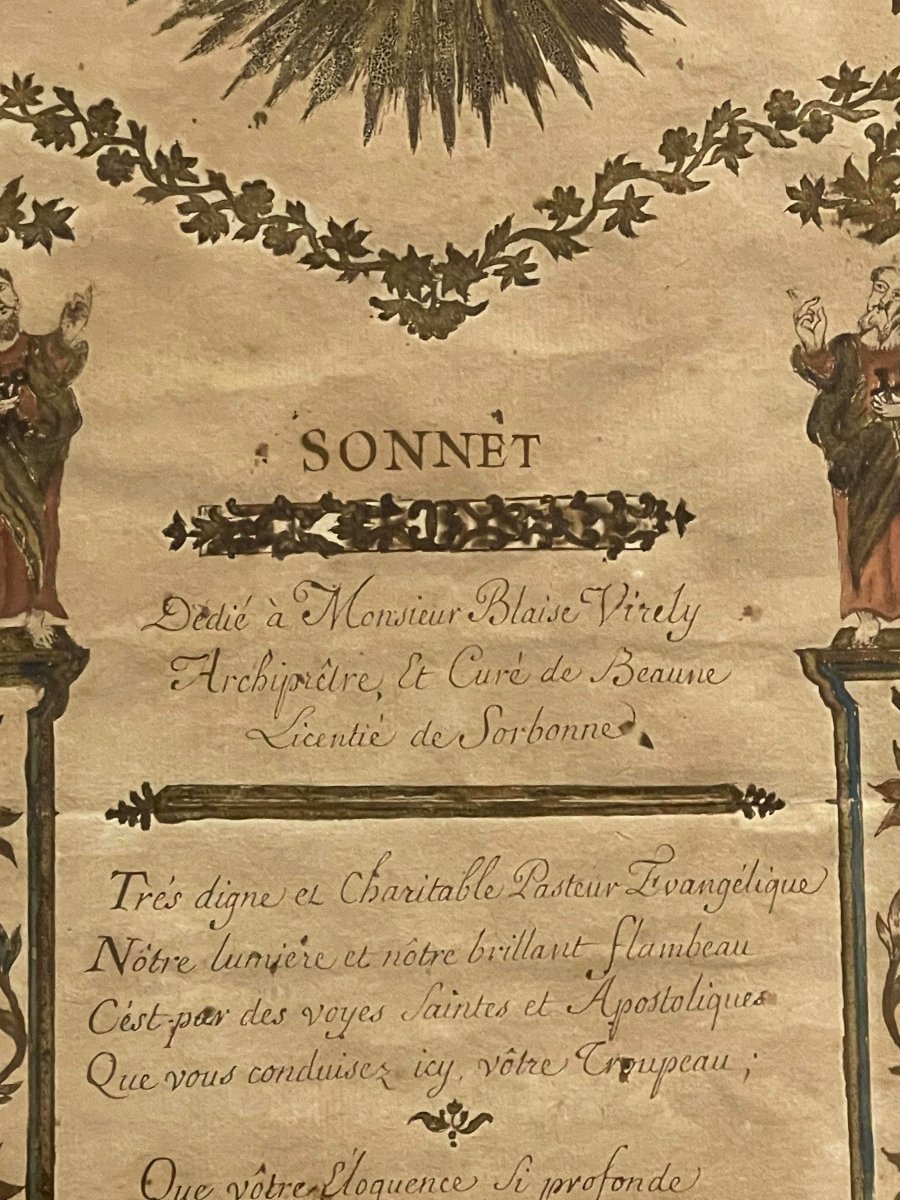 SONNET
Dédié à Monsieur Blaise Virely
Archiprêtre, Et Curé de Beaune
Licentié de Sorbonne
Trés digne et Charitable Pasteur Evangélique
Nôtre lumiére et nôtre brillant flambeau
C'ést par des voyes Saintes et Apostoliques
Que vous conduisez icy, vôtre Troupeau ;
Que vôtre Éloquence Si profonde